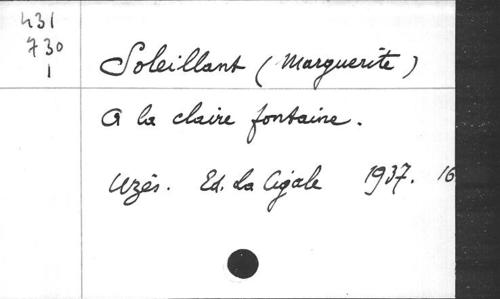 431
730
1
Soleillant (Marguerite)
A la claire fontaine.
Uzès. Ed. La Cigale 1937. 16